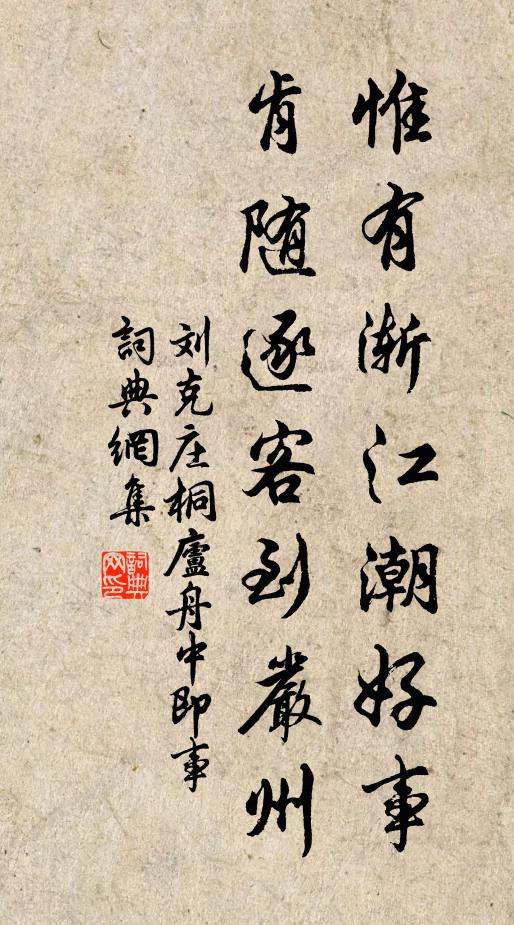 惟有渐江潮好事
肯随逐客到嚴州
刘克庄桐廬舟中即事
詞典網集
詞典
网印